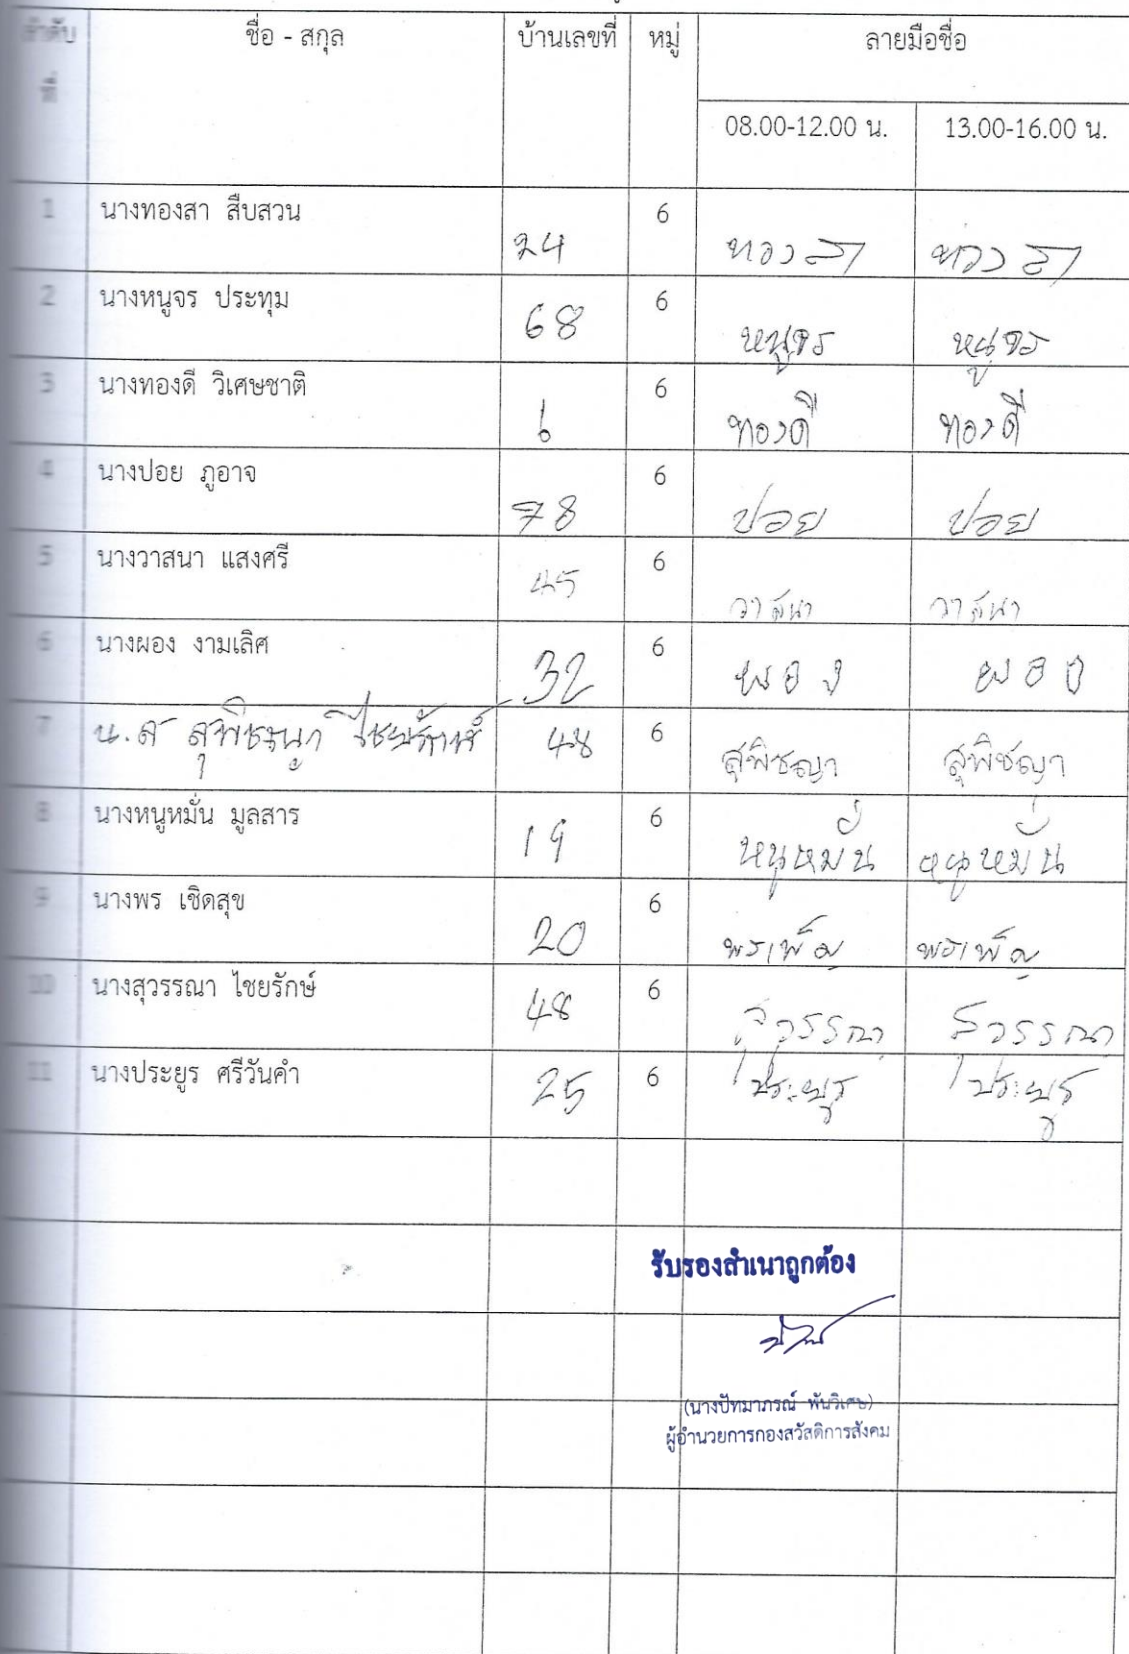 ลำดับ ชื่อ - สกุล บ้านเลขที่ หมู่ ลายมือชื่อ
ที่
08.00-12.00 น. 13.00-16.00 น.
1 นางทองสา สืบสวน 24 6 ทองสา ทองสา
2 นางหนูจร ประทุม 68 6 หนูจร หนูจร
3 นางทองดี วิเศษชาติ 6 6 ทองดี ทองดี
4 นางปอย ภูอาจ 78 6 ปอย ปอย
5 นางวาสนา แสงศรี 45 6 วาสนา วาสนา
6 นางผอง งามเลิศ 32 6 ผอง ผอง
7 น.ส สุพิชญา ไชยรักษ์ 48 6 สุพิชญา สุพิชญา
8 นางหนูหมั่น มูลสาร 19 6 หนูหมั่น หนูหมั่น
9 นางพร เชิดสุข 20 6
10 นางสุวรรณา ไชยรักษ์ 48 6 สุวรรณา สุวรรณา
11 นางประยูร ศรีวันคำ 25 6 ประยูร ประยูร
รับรองสำเนาถูกต้อง
(นางปัทมาภรณ์ พันวิเศษ)
ผู้อำนวยการกองสวัสดิการสังคม